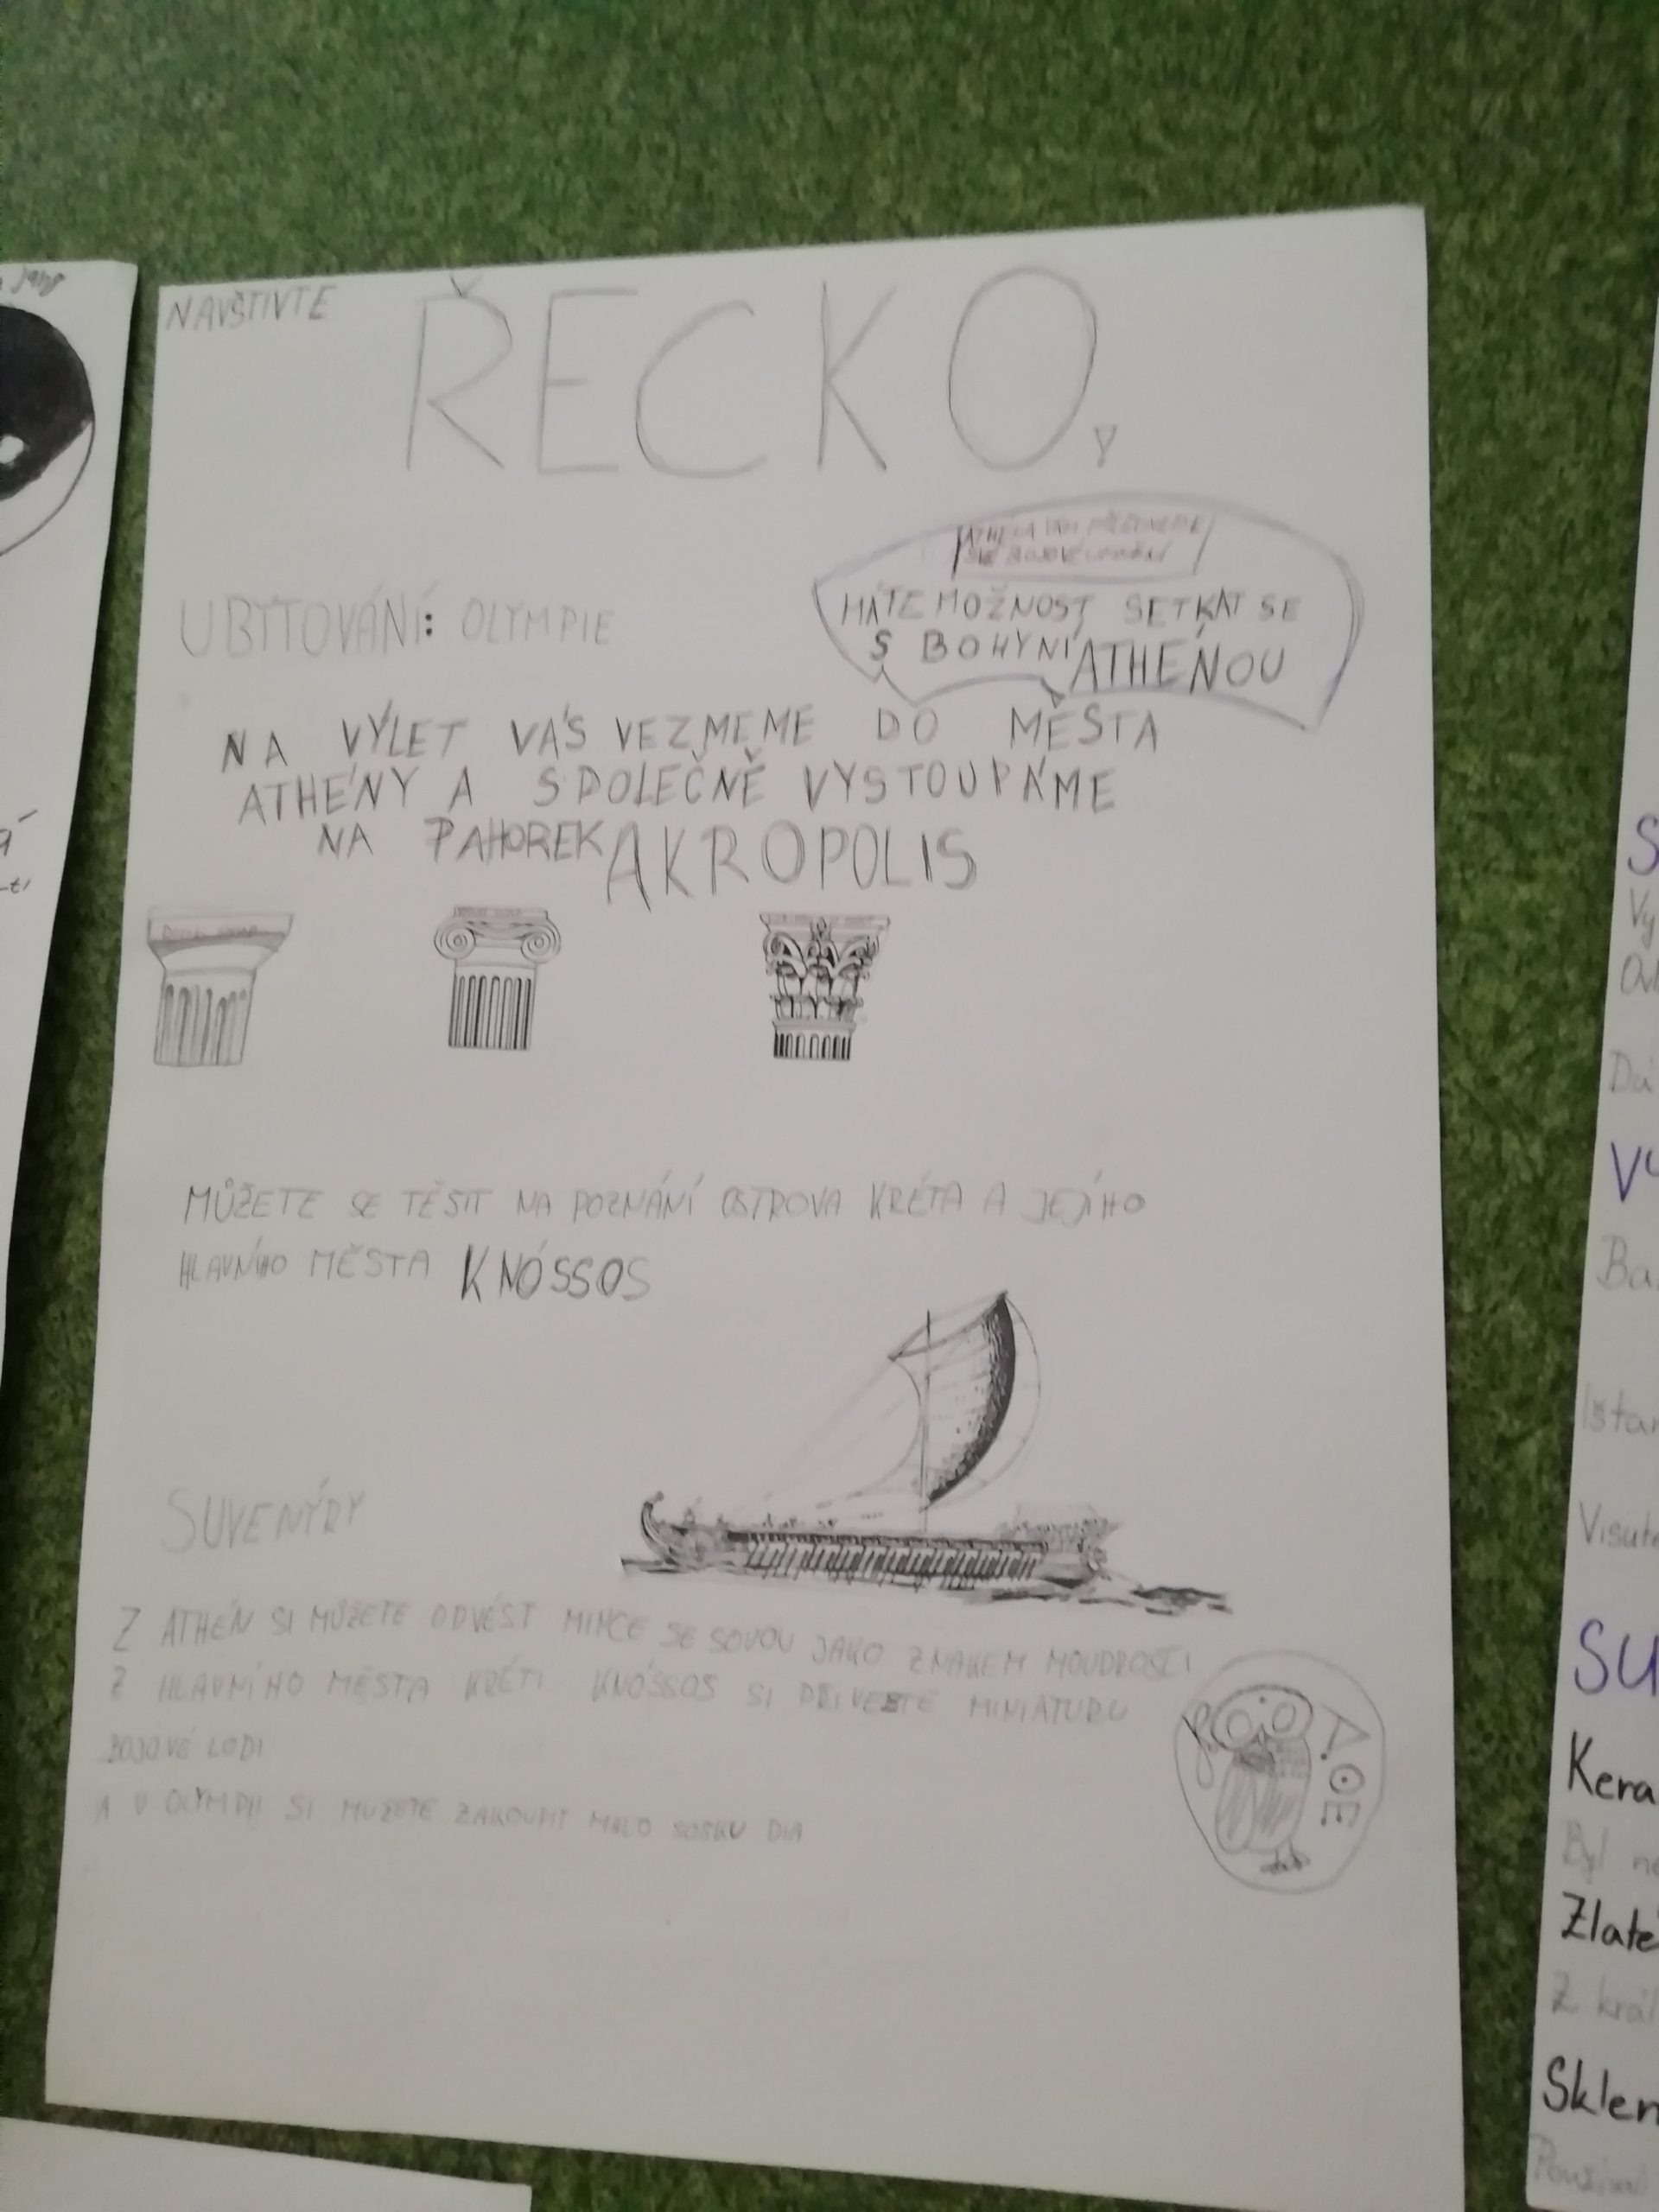 NAVŠTIVTE
ŘECKO
ATHÉNA VÁM PŘEDVEDE
SVÉ BOJOVÉ UMĚNÍ
MÁTE MOŽNOST SETKAT SE
S BOHYNÍ ATHÉNOU
UBYTOVÁNÍ: OLYMPIE
NA VÝLET VÁS VEZMEME DO MĚSTA
ATHÉNY A SPOLEČNĚ VYSTOUPÁME
NA PAHOREK AKROPOLIS
MŮŽETE SE TĚŠIT NA POZNÁNÍ OSTROVA KRÉTA A JEJÍHO
HLAVNÍHO MĚSTA KNÓSSOS
SUVENÝRY
Z ATHÉN SI MŮŽETE ODVÉST MINCE SE SOVOU JAKO ZNAKEM MOUDROSTI
Z HLAVNÍHO MĚSTA KRÉTI KNÓSSOS SI PŘIVEZTE MINIATURU
BOJOVÉ LODI
A V OLYMPII SI MŮŽETE ZAKOUPIT MALO SOŠKU DIA
S
Vy
Dá
Ba
Ištar
SU
Kera
Byl
Zlaté
Z král
Sklen